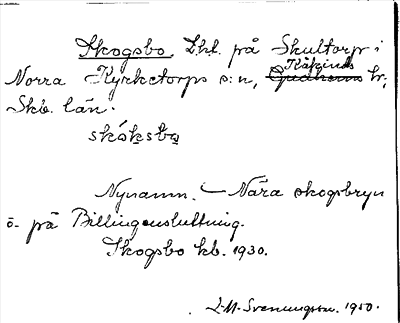 Skogsbo Lht. på Skultorp i
Norra Kyrketorps s:n, Gudhems Kåkinds hr,
Skb. län.
skóksbo
Nynamn. — Nära skogsbryn
ö. på Billingensluttning.
Skogsbo kb. 1930.
L-M. Svenungsson. 1950.